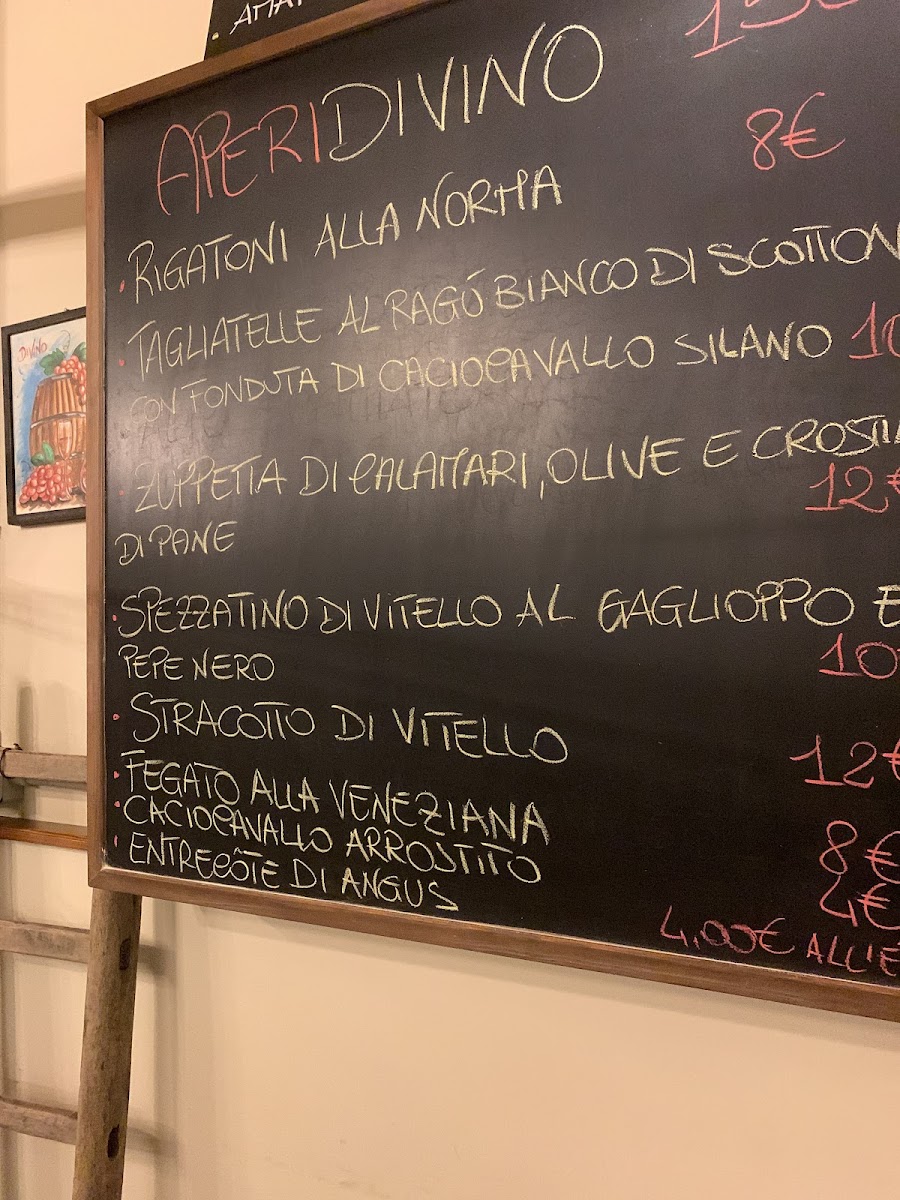 APERIDIVINO
8€
RIGATONI ALLA NORMA
TAGLIATELLE AL RAGÚ BIANCO DI SCOTTON
CON FONDUTA DI CACIOCAVALLO SILANO 10
ZUPPETTA DI CALAMARI, OLIVE E CROSTI
12€
DI PANE
SPEZZATINO DI VITELLO AL GAGLIOPPO E
10
PEPE NERO
STRACOTTO DI VITELLO
12€
FEGATO ALLA VENEZIANA
8€
CACIOCAVALLO ARROSTITO
4€
ENTRECÔTE DI ANGUS
4,00€ ALL'E
DIVINO